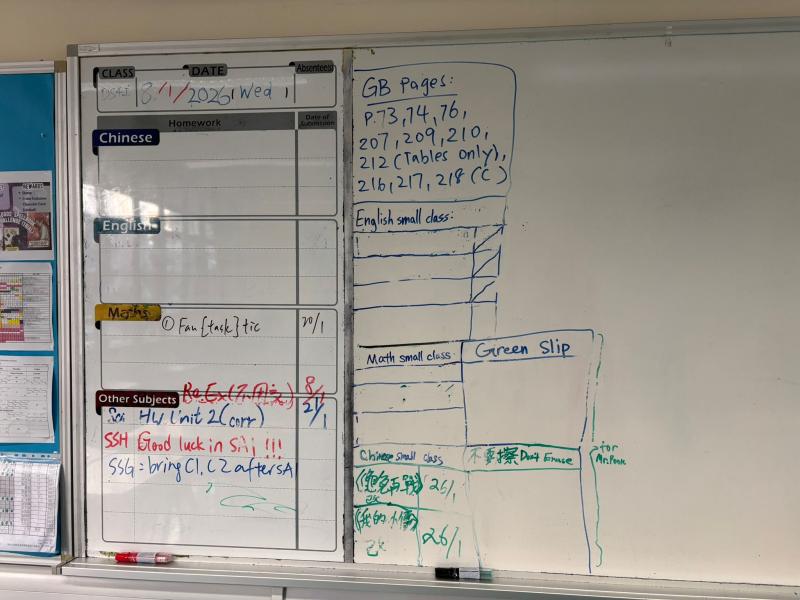 CLASS DATE Absentees
8/1/2026, Wed
Homework Date of Submission
Chinese
English
Maths
① Fan{task}tic 20/1
Other Subjects
8/1
HW Unit 2 (corr) 21/1
SSH Good luck in SA1 !!!
SSG: bring C1, C2 after SA1
GB Pages:
P.73, 74, 76,
207, 209, 210,
212 (Tables only),
216, 217, 218 (C)
English small class:
Math small class
Green Slip
Chinese small class
26/1
26/1
不要擦 Don't Erase
for
REWARDS